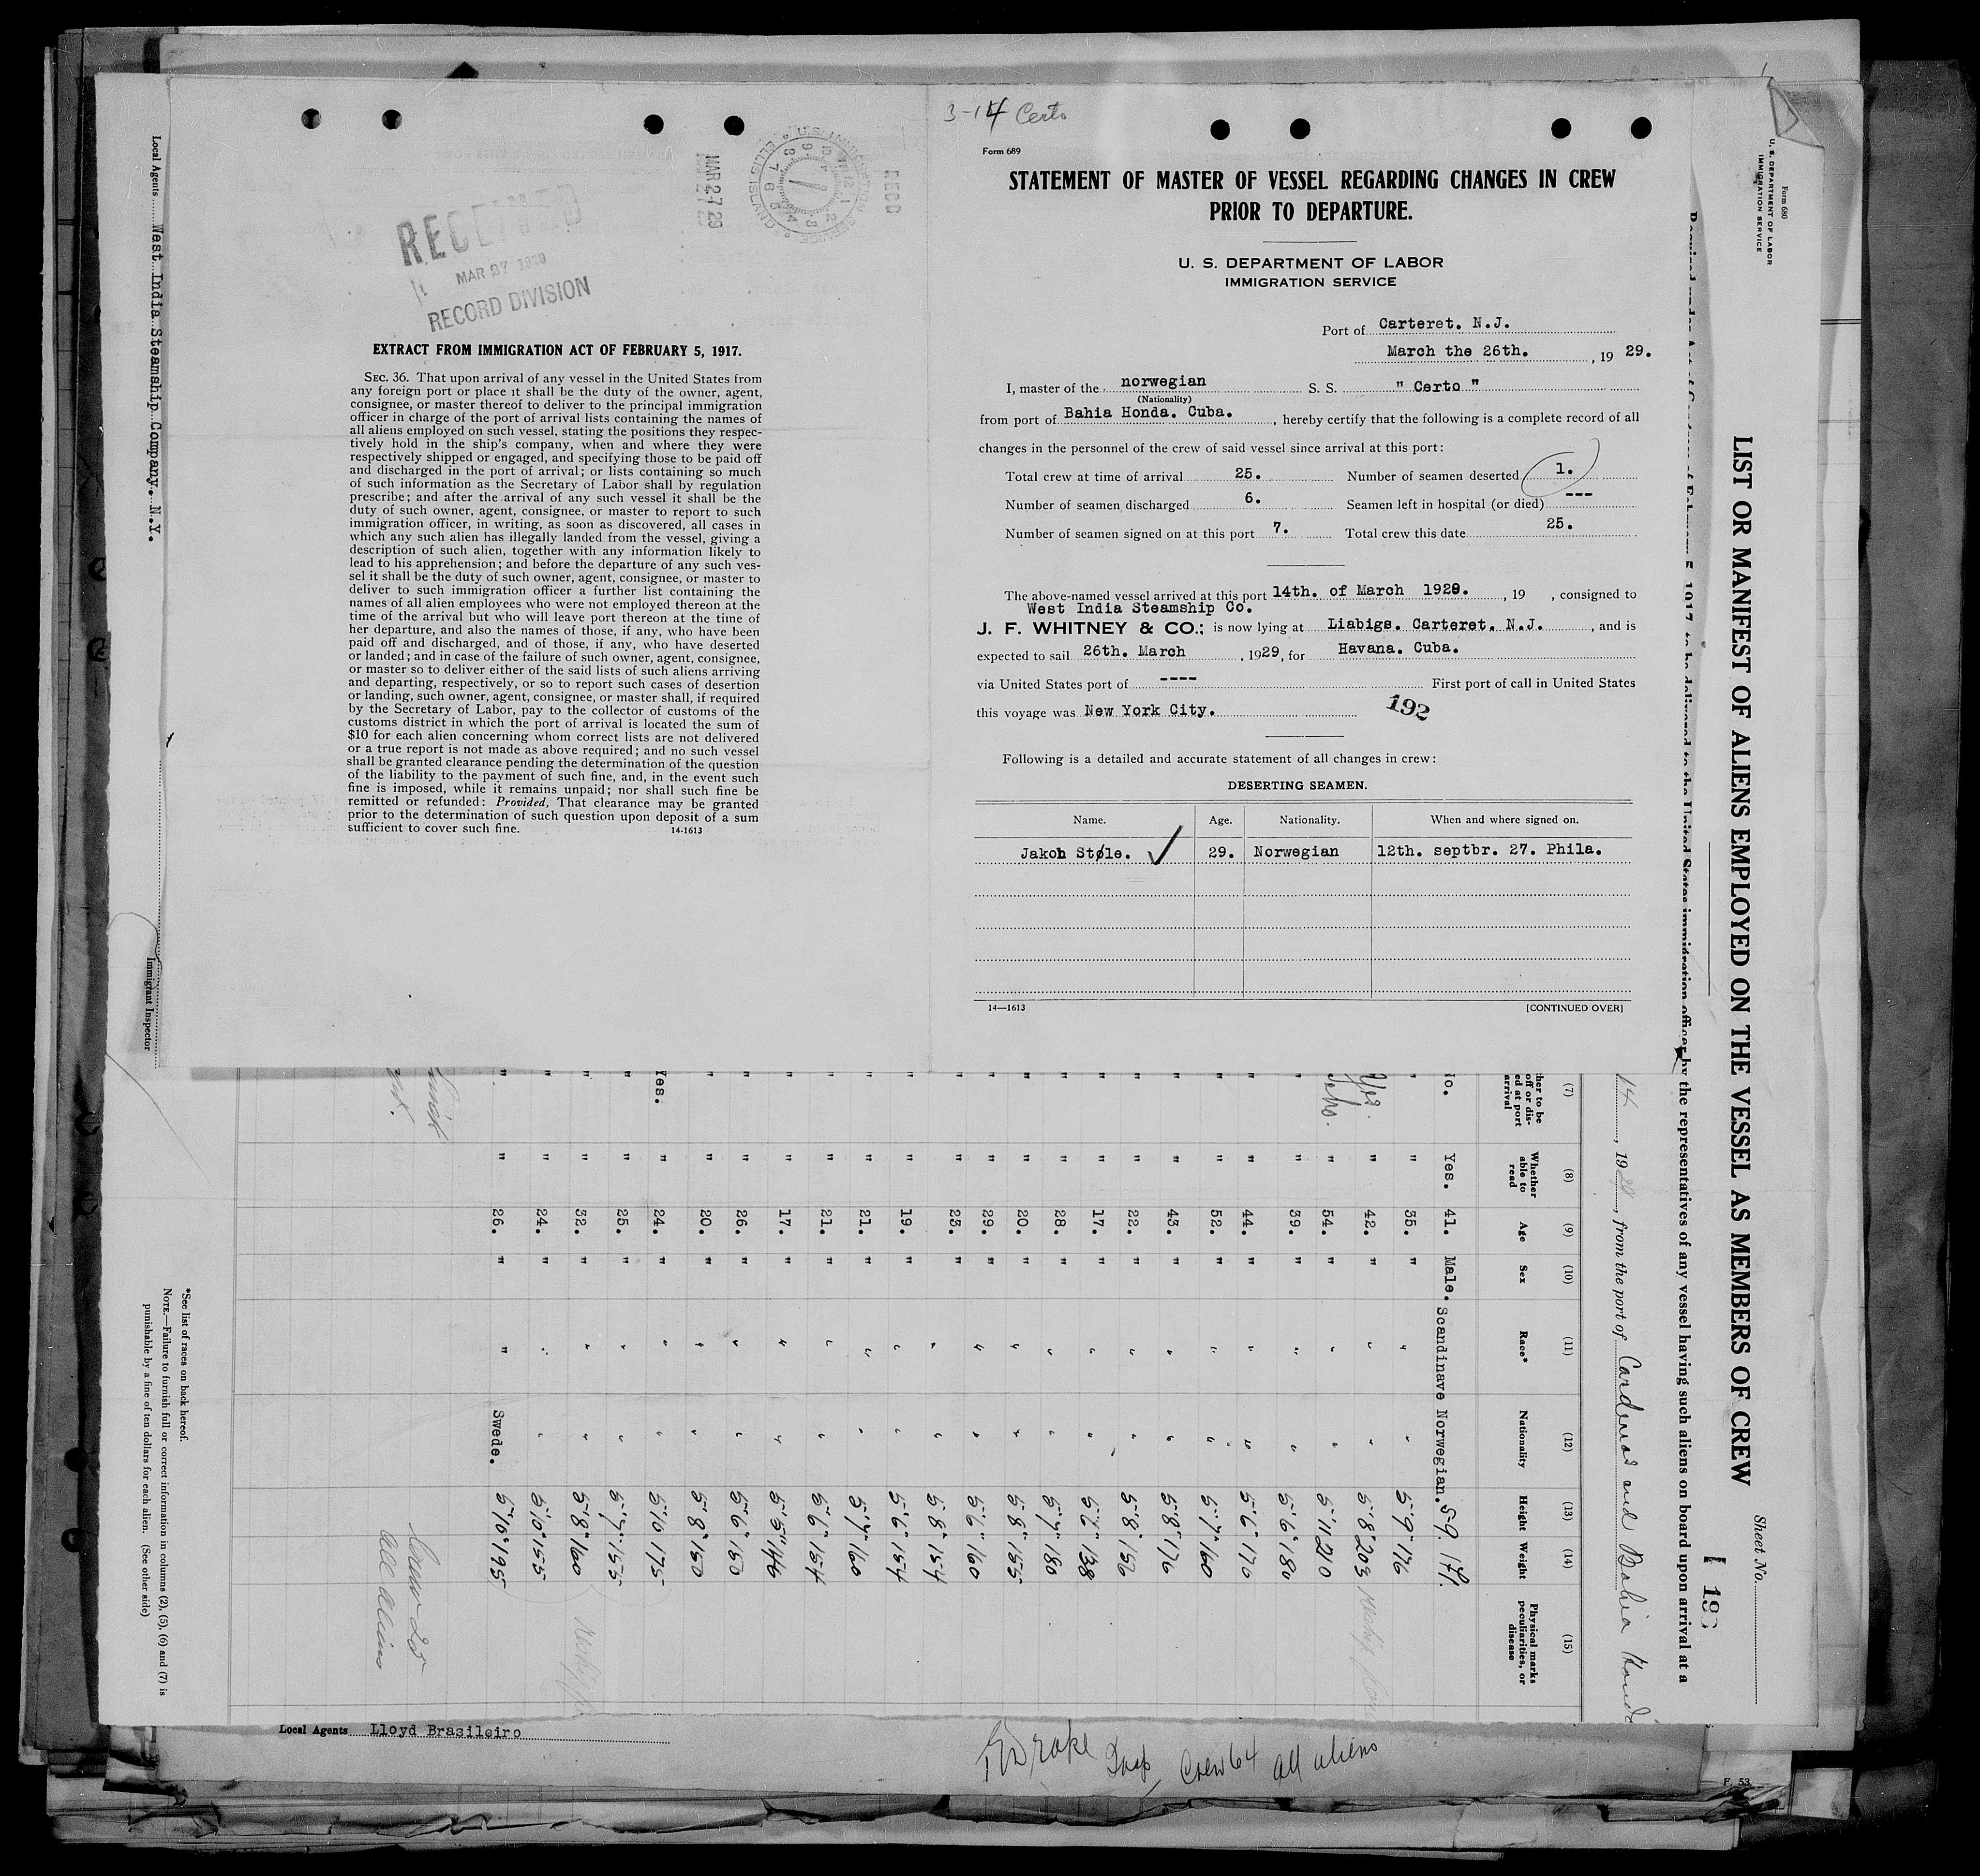 3-14 Certo
Form 689
STATEMENT OF MASTER OF VESSEL REGARDING CHANGES IN CREW
PRIOR TO DEPARTURE.
U. S. DEPARTMENT OF LABOR
IMMIGRATION SERVICE
Port of Carteret. N.J.
March the 26th. , 19 29.
I, master of the norwegian S. S. " Certo "
(Nationality)
from port of Bahia Honda. Cuba. , hereby certify that the following is a complete record of all
changes in the personnel of the crew of said vessel since arrival at this port:
Total crew at time of arrival 25. Number of seamen deserted 1.
Number of seamen discharged 6. Seamen left in hospital (or died) ---
Number of seamen signed on at this port 7. Total crew this date 25.
The above-named vessel arrived at this port 14th. of March 1929. , 19 , consigned to
West India Steamship Co.
J. F. WHITNEY & CO.; is now lying at Liabigs. Carteret. N.J. , and is
expected to sail 26th. March , 1929, for Havana. Cuba.
via United States port of ---- First port of call in United States
this voyage was New York City.
192
Following is a detailed and accurate statement of all changes in crew:
DESERTING SEAMEN.
Name. Age. Nationality. When and where signed on.
Jakob Støle. ✓ 29. Norwegian 12th. septbr. 27. Phila.
14—1613 [CONTINUED OVER]
RECEIVED
MAR 27 1929
RECORD DIVISION
MAR 27 29
U.S. IMMIGRATION SERVICE
ELLIS ISLAND
RECD
EXTRACT FROM IMMIGRATION ACT OF FEBRUARY 5, 1917.
SEC. 36. That upon arrival of any vessel in the United States from
any foreign port or place it shall be the duty of the owner, agent,
consignee, or master thereof to deliver to the principal immigration
officer in charge of the port of arrival lists containing the names of
all aliens employed on such vessel, stating the positions they respec-
tively hold in the ship's company, when and where they were
respectively shipped or engaged, and specifying those to be paid off
and discharged in the port of arrival; or lists containing so much
of such information as the Secretary of Labor shall by regulation
prescribe; and after the arrival of any such vessel it shall be the
duty of such owner, agent, consignee, or master to report to such
immigration officer, in writing, as soon as discovered, all cases in
which any such alien has illegally landed from the vessel, giving a
description of such alien, together with any information likely to
lead to his apprehension; and before the departure of any such ves-
sel it shall be the duty of such owner, agent, consignee, or master to
deliver to such immigration officer a further list containing the
names of all alien employees who were not employed thereon at the
time of the arrival but who will leave port thereon at the time of
her departure, and also the names of those, if any, who have been
paid off and discharged, and of those, if any, who have deserted
or landed; and in case of the failure of such owner, agent, consignee,
or master so to deliver either of the said lists of such aliens arriving
and departing, respectively, or so to report such cases of desertion
or landing, such owner, agent, consignee, or master shall, if required
by the Secretary of Labor, pay to the collector of customs of the
customs district in which the port of arrival is located the sum of
$10 for each alien concerning whom correct lists are not delivered
or a true report is not made as above required; and no such vessel
shall be granted clearance pending the determination of the question
of the liability to the payment of such fine, and, in the event such
fine is imposed, while it remains unpaid; nor shall such fine be
remitted or refunded: Provided, That clearance may be granted
prior to the determination of such question upon deposit of a sum
sufficient to cover such fine. 14-1613
Form 680
U. S. DEPARTMENT OF LABOR
IMMIGRATION SERVICE
Sheet No.
LIST OR MANIFEST OF ALIENS EMPLOYED ON THE VESSEL AS MEMBERS OF CREW
by the representatives of any vessel having such aliens on board upon arrival at a
14 , 1929 , from the port of Cardenas and Bahia Honda
(7) (8) (9) (10) (11) (12) (13) (14) (15)
Whether able to read Age Sex Race* Nationality Height Weight Physical marks, peculiarities, or disease
Yes. 41. Male. Scandinave Norwegian. 5 9. 171.
" " 35. " " " 5'9" 176
Yes. " 42. " " " 5'8" 203
" 54. " " " 5'11 210
" " 39. " " " 5'6" 180
" " 44. " " " 5'6" 170
" " 52. " " " 5'7" 160
" " 43. " " " 5'8" 176
" " 22. " " " 5'8" 156
" " 17. " " " 5'6" 138
" " 28. " " " 5'7" 180
" " 20. " " " 5'8" 155
" " 29. " " " 5'6" 160
" " 23. " " " 5'8" 154
" " 19. " " " 5'6" 154
" " 21. " " " 5'7" 160
" " 21. " " " 5'6" 154
" " 17. " " " 5'5" 146
" " 26. " " " 5'6" 150
" " 20. " " " 5'8" 150
Yes. " 24. " " " 5'10 175
" " 25. " " " 5'7" 155
" " 32. " " " 5'8" 160
" " 24. " " " 5'10" 155
" " 26. " " Swede. 5'10" 195
Crew 25
all aliens
*See list of races on back hereof.
NOTE.—Failure to furnish full or correct information in columns (2), (5), (6) and (7) is
punishable by a fine of ten dollars for each alien. (See other side)
Local Agents West India Steamship Company. N.Y.
Immigrant Inspector
Local Agents Lloyd Brasileiro
Drake Insp Crew 64 all aliens
F 53